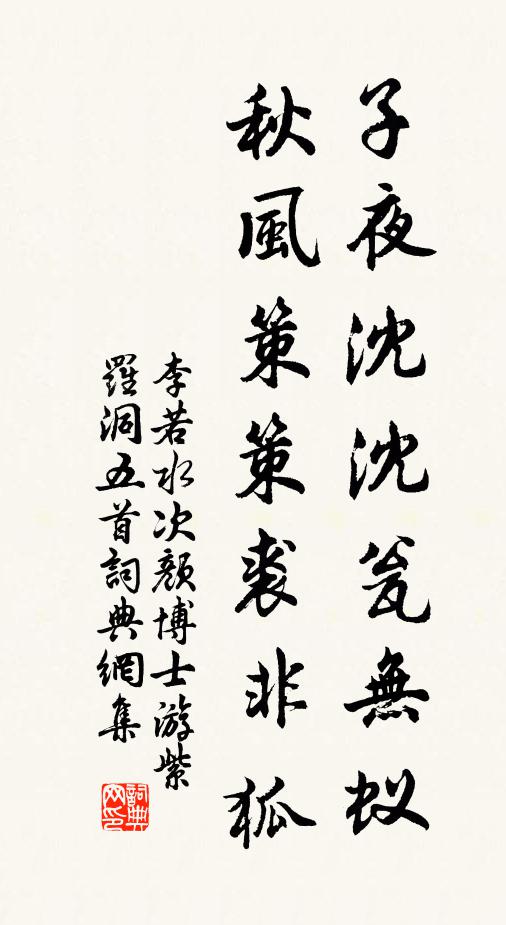 子夜沈沈瓮無蚁
秋風策策裘非狐
李若水次顏博士游紫
羅洞五首詞典網集
詞典网印